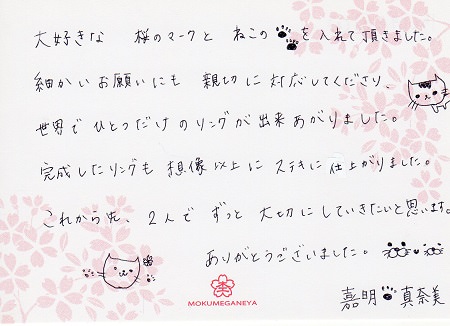 大好きな 桜のマークと ねこの 🐾 を入れて頂きました。
細かいお願いにも 親切に対応してくださり、
世界でひとつだけのリングが出来あがりました。
完成したリングも 想像以上に ステキに仕上がりました。
これからも、2人で ずっと 大切にしていきたいと思います。
ありがとうございました。
嘉明 🐾 真奈美
MOKUMEGANEYA